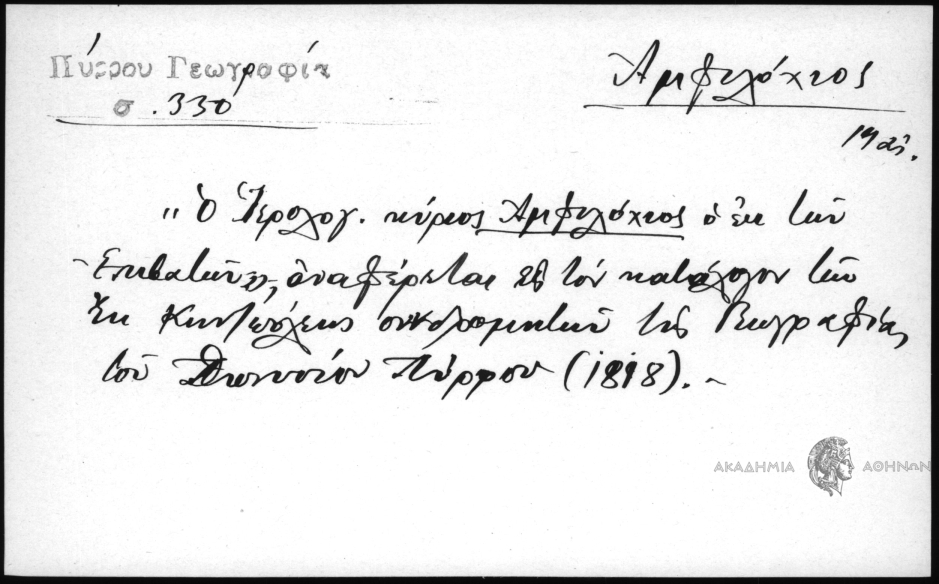 Πύρρου Γεωγραφία
σ. 330
Ἀμφιλόχιος
19 αἰ.
"Ὁ Ἱερολογ. κύριος Ἀμφιλόχιος ὁ ἐκ τῶν
Ἐπιβατῶν", ἀναφέρεται εἰς τὸν κατάλογον τῶν
ἐκ Κων)πόλεως συνδρομητῶν τῆς Γεωγραφίας
τοῦ Διονυσίου Πύρρου (1818). -
ΑΚΑΔΗΜΙΑ ΑΘΗΝΩΝ